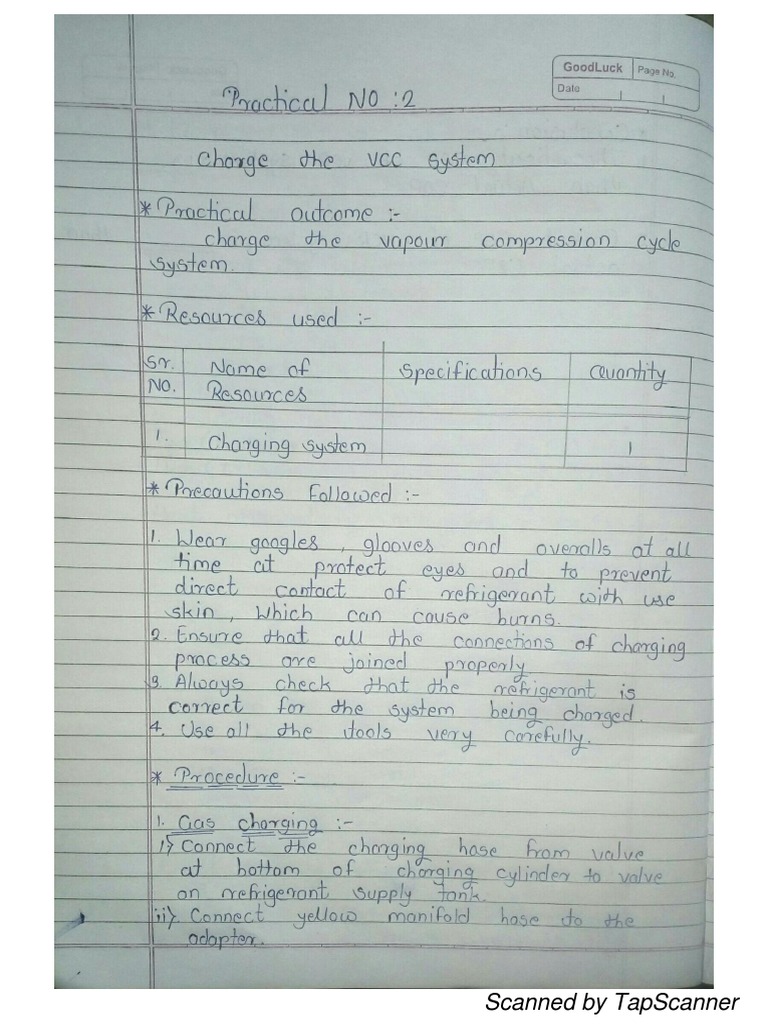 GoodLuck Page No.
Date
Practical NO :2
Charge the VCC System
* Practical outcome :-
charge the vapour compression cycle
system.
* Resources used :-
Sr. No. Name of Resources Specifications Quantity
1. Charging system 1
* Precautions Followed :-
1. Wear googles , glooves and overalls at all
time at protect eyes and to prevent
direct contact of refrigerant with use
skin, which can cause burns.
2. Ensure that all the connections of charging
process are joined properly
3. Always check that the refrigerant is
correct for the system being charged.
4. Use all the tools very carefully.
* Procedure :-
1. Gas charging :-
i) Connect the charging hose from valve
at bottom of charging cylinder to valve
on refrigerant supply tank.
ii) Connect yellow manifold hose to the
adapter.
Scanned by TapScanner